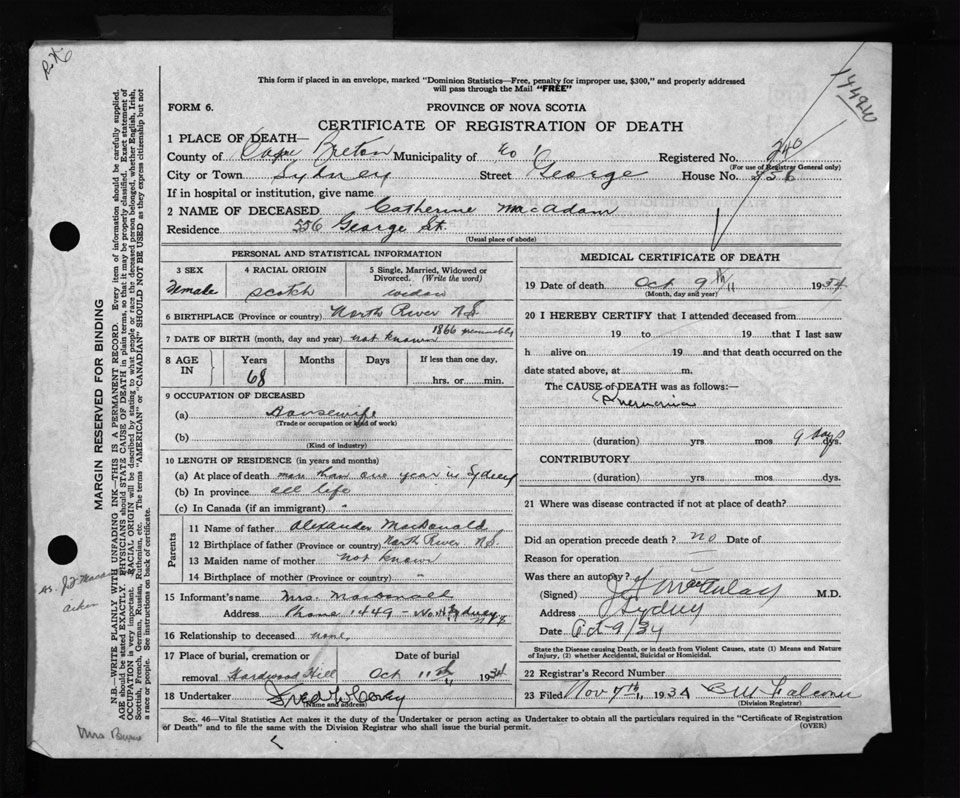 This form if placed in an envelope, marked "Dominion Statistics—Free, penalty for improper use, $300," and properly addressed
will pass through the Mail "FREE"
FORM 6.
PROVINCE OF NOVA SCOTIA
CERTIFICATE OF REGISTRATION OF DEATH
1 PLACE OF DEATH—
County of Cape Breton Municipality of Registered No. 240
(For use of Registrar General only)
City or Town Sydney Street George House No. 556
If in hospital or institution, give name
2 NAME OF DECEASED Catherine MacAdam
Residence 556 George St.
(Usual place of abode)
PERSONAL AND STATISTICAL INFORMATION
3 SEX 4 RACIAL ORIGIN 5 Single, Married, Widowed or
Divorced. (Write the word)
Female Scotch widow
6 BIRTHPLACE (Province or country) North River N.S.
1866 presumably
7 DATE OF BIRTH (month, day and year) not known
8 AGE IN Years Months Days If less than one day,
68 hrs. or min.
9 OCCUPATION OF DECEASED
(a) Housewife
(Trade or occupation or kind of work)
(b)
(Kind of industry)
10 LENGTH OF RESIDENCE (in years and months)
(a) At place of death more than one year in Sydney
(b) In province all life
(c) In Canada (if an immigrant) "
Parents
11 Name of father Alexander MacDonald
12 Birthplace of father (Province or country) North River N.S.
13 Maiden name of mother not known
14 Birthplace of mother (Province or country) "
15 Informant's name Mrs. Macdonald
Address Phone 1449 - North Sydney
16 Relationship to deceased none
17 Place of burial, cremation or Date of burial
removal Hardwood Hill Oct 11th 1934
18 Undertaker
(Name and address)
MEDICAL CERTIFICATE OF DEATH
19 Date of death Oct 9th 1934
(Month, day and year)
20 I HEREBY CERTIFY that I attended deceased from
19 to 19 that I last saw
h alive on 19 and that death occurred on the
date stated above, at m.
The CAUSE OF DEATH was as follows:—
Pneumonia
(duration) yrs mos 9 days dys.
CONTRIBUTORY
(duration) yrs mos dys.
21 Where was disease contracted if not at place of death?
Did an operation precede death? no Date of
Reason for operation
Was there an autopsy?
(Signed) M.D.
Address Sydney
Date Oct 9/34
State the Disease causing Death, or in death from Violent Causes, state (1) Means and Nature
of Injury, (2) whether Accidental, Suicidal or Homicidal.
22 Registrar's Record Number
23 Filed Nov 7th 1934 Falconer
(Division Registrar)
Sec. 46—Vital Statistics Act makes it the duty of the Undertaker or person acting as Undertaker to obtain all the particulars required in the "Certificate of Registration
of Death" and to file the same with the Division Registrar who shall issue the burial permit.
(OVER)
MARGIN RESERVED FOR BINDING
N.B.—WRITE PLAINLY WITH UNFADING INK—THIS IS A PERMANENT RECORD. Every item of information should be carefully supplied.
AGE should be stated EXACTLY. PHYSICIANS should STATE CAUSE OF DEATH in plain terms, so that it may be properly classified. Exact statement of
OCCUPATION is very important. RACIAL ORIGIN will be described by stating to what people or race the deceased person belonged, whether English, Irish,
Scottish, French, German, Russian, Ruthenian, etc. The terms "AMERICAN" or "CANADIAN" SHOULD NOT BE USED as they express citizenship but not
a race or people. See instructions on back of certificate.